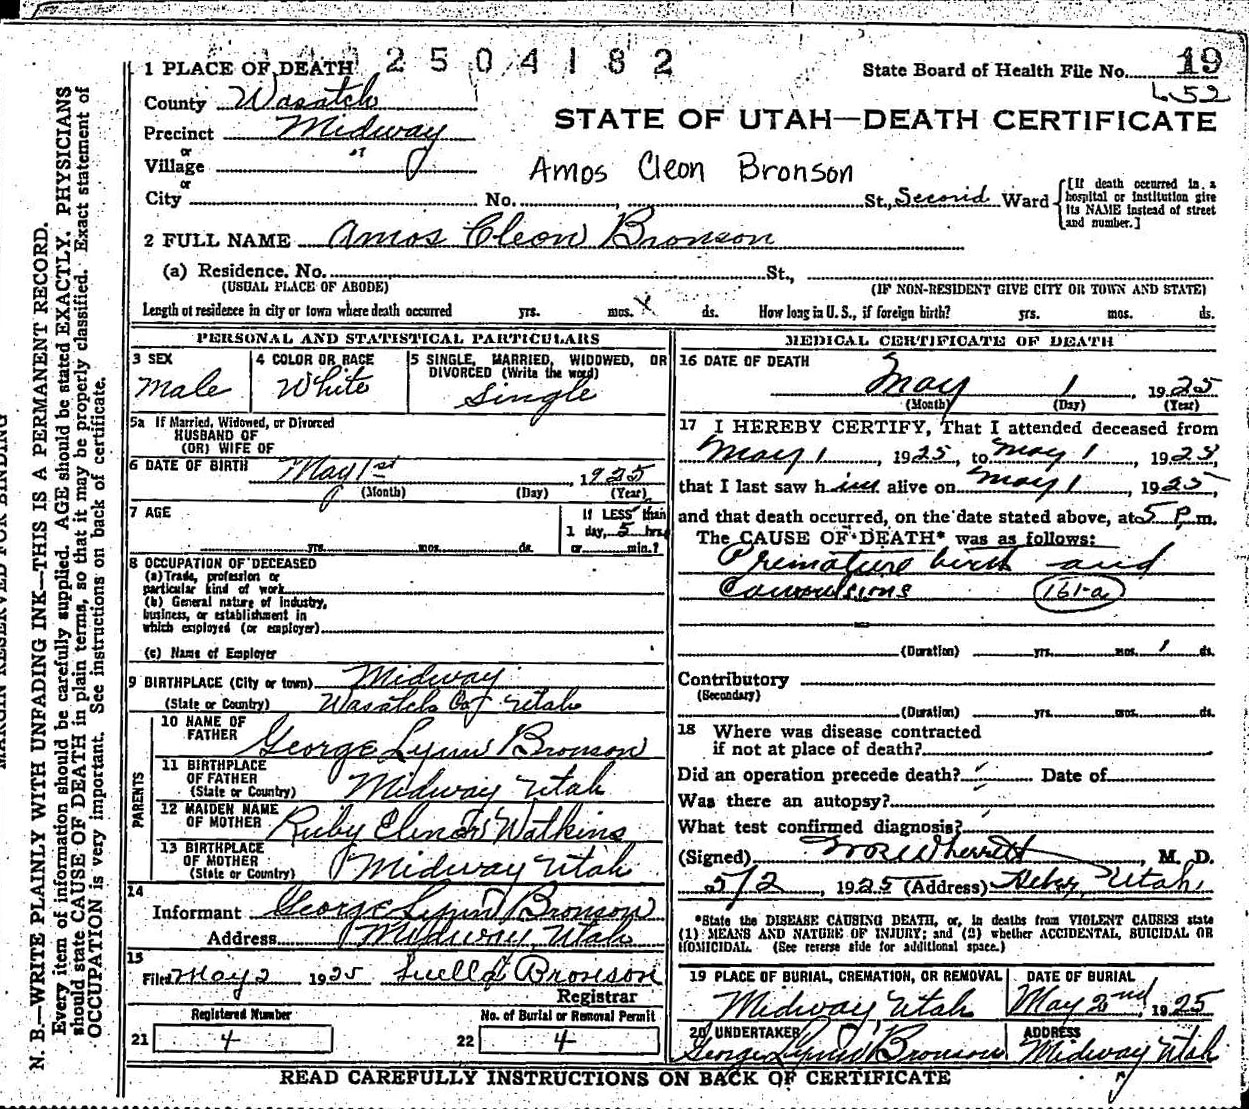 2504182
1 PLACE OF DEATH
State Board of Health File No. 19
652
County Wasatch
STATE OF UTAH—DEATH CERTIFICATE
Precinct Midway
or
Village
Amos Cleon Bronson
or
City No. St., Second Ward
[If death occurred in a hospital or institution give its NAME instead of street and number.]
2 FULL NAME Amos Cleon Bronson
(a) Residence. No. St.,
(USUAL PLACE OF ABODE) (IF NON-RESIDENT GIVE CITY OR TOWN AND STATE)
Length of residence in city or town where death occurred yrs. mos. X ds. How long in U. S., if foreign birth? yrs. mos. ds.
PERSONAL AND STATISTICAL PARTICULARS
3 SEX
Male
4 COLOR OR RACE
White
5 SINGLE, MARRIED, WIDOWED, OR
DIVORCED (Write the word)
Single
5a If Married, Widowed, or Divorced
HUSBAND OF
(OR) WIFE OF
6 DATE OF BIRTH May 1st, 1925
(Month) (Day) (Year)
7 AGE
If LESS than
1 day, 5 hrs
yrs. mos. ds. or min.?
8 OCCUPATION OF DECEASED
(a) Trade, profession or
particular kind of work
(b) General nature of industry,
business, or establishment in
which employed (or employer)
(c) Name of Employer
9 BIRTHPLACE (City or town) Midway
(State or Country) Wasatch Co Utah
PARENTS
10 NAME OF
FATHER George Lynn Bronson
11 BIRTHPLACE
OF FATHER
(State or Country) Midway Utah
12 MAIDEN NAME
OF MOTHER Ruby Elinor Watkins
13 BIRTHPLACE
OF MOTHER
(State or Country) Midway Utah
14
Informant George Lynn Bronson
Address Midway, Utah
15
Filed May 2 1925 Luella Bronson
Registrar
Registered Number No. of Burial or Removal Permit
21 4 22 4
MEDICAL CERTIFICATE OF DEATH
16 DATE OF DEATH
May 1, 1925
(Month) (Day) (Year)
17 I HEREBY CERTIFY, That I attended deceased from
May 1, 1925, to May 1, 1925,
that I last saw him alive on May 1, 1925,
and that death occurred, on the date stated above, at 5 P.m.
The CAUSE OF DEATH* was as follows:
Premature birth and
Convulsions 161-a
(Duration) yrs. mos. 1 ds.
Contributory
(Secondary)
(Duration) yrs. mos. ds.
18 Where was disease contracted
if not at place of death?
Did an operation precede death? Date of
Was there an autopsy?
What test confirmed diagnosis?
(Signed) Wherritt, M. D.
5/2, 1925 (Address) Heber, Utah
*State the DISEASE CAUSING DEATH, or, in deaths from VIOLENT CAUSES state
(1) MEANS AND NATURE OF INJURY; and (2) whether ACCIDENTAL, SUICIDAL OR
HOMICIDAL. (See reverse side for additional space.)
19 PLACE OF BURIAL, CREMATION, OR REMOVAL
Midway Utah
DATE OF BURIAL
May 2nd, 1925
20 UNDERTAKER
George Lynn Bronson
ADDRESS
Midway Utah
READ CAREFULLY INSTRUCTIONS ON BACK OF CERTIFICATE
MARGIN RESERVED FOR BINDING
N. B.—WRITE PLAINLY WITH UNFADING INK—THIS IS A PERMANENT RECORD.
Every item of information should be carefully supplied. AGE should be stated EXACTLY. PHYSICIANS
should state CAUSE OF DEATH in plain terms, so that it may be properly classified. Exact statement of
OCCUPATION is very important. See instructions on back of certificate.